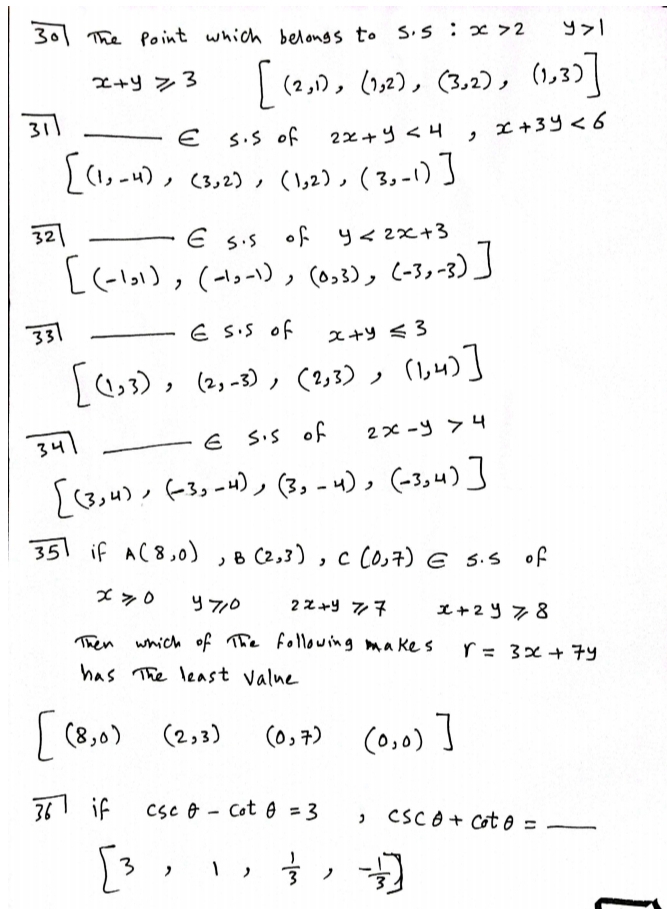 30| The point which belongs to S.S : x >2 y>1
x+y ⩾ 3 [ (2,1), (1,2), (3,2), (1,3)]
31| ——— ∈ S.S of 2x+y <4 , x+3y <6
[(1,-4) , (3,2) , (1,2) , (3,-1) ]
32| ——— ∈ S.S of y < 2x+3
[ (-1,1) , (-1,-1) , (0,3) , (-3,-3) ]
33| ——— ∈ S.S of x+y ⩽ 3
[ (1,3) , (2,-3) , (2,3) , (1,4) ]
34| ——— ∈ S.S of 2x-y > 4
[ (3,4) , (-3,-4) , (3,-4) , (-3,4) ]
35| if A(8,0) , B (2,3) , C (0,7) ∈ S.S of
x ⩾ 0 y ⩾ 0 2x+y ⩾ 7 x+2y ⩾ 8
Then which of The following makes r = 3x + 7y
has The least value
[ (8,0) (2,3) (0,7) (0,0) ]
36| if csc θ - cot θ = 3 , csc θ + cot θ = ——
[ 3 , 1 , 1/3 , -1/3 ]